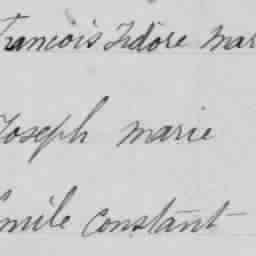 François Isidore Mar
Joseph marie
Emile Constant